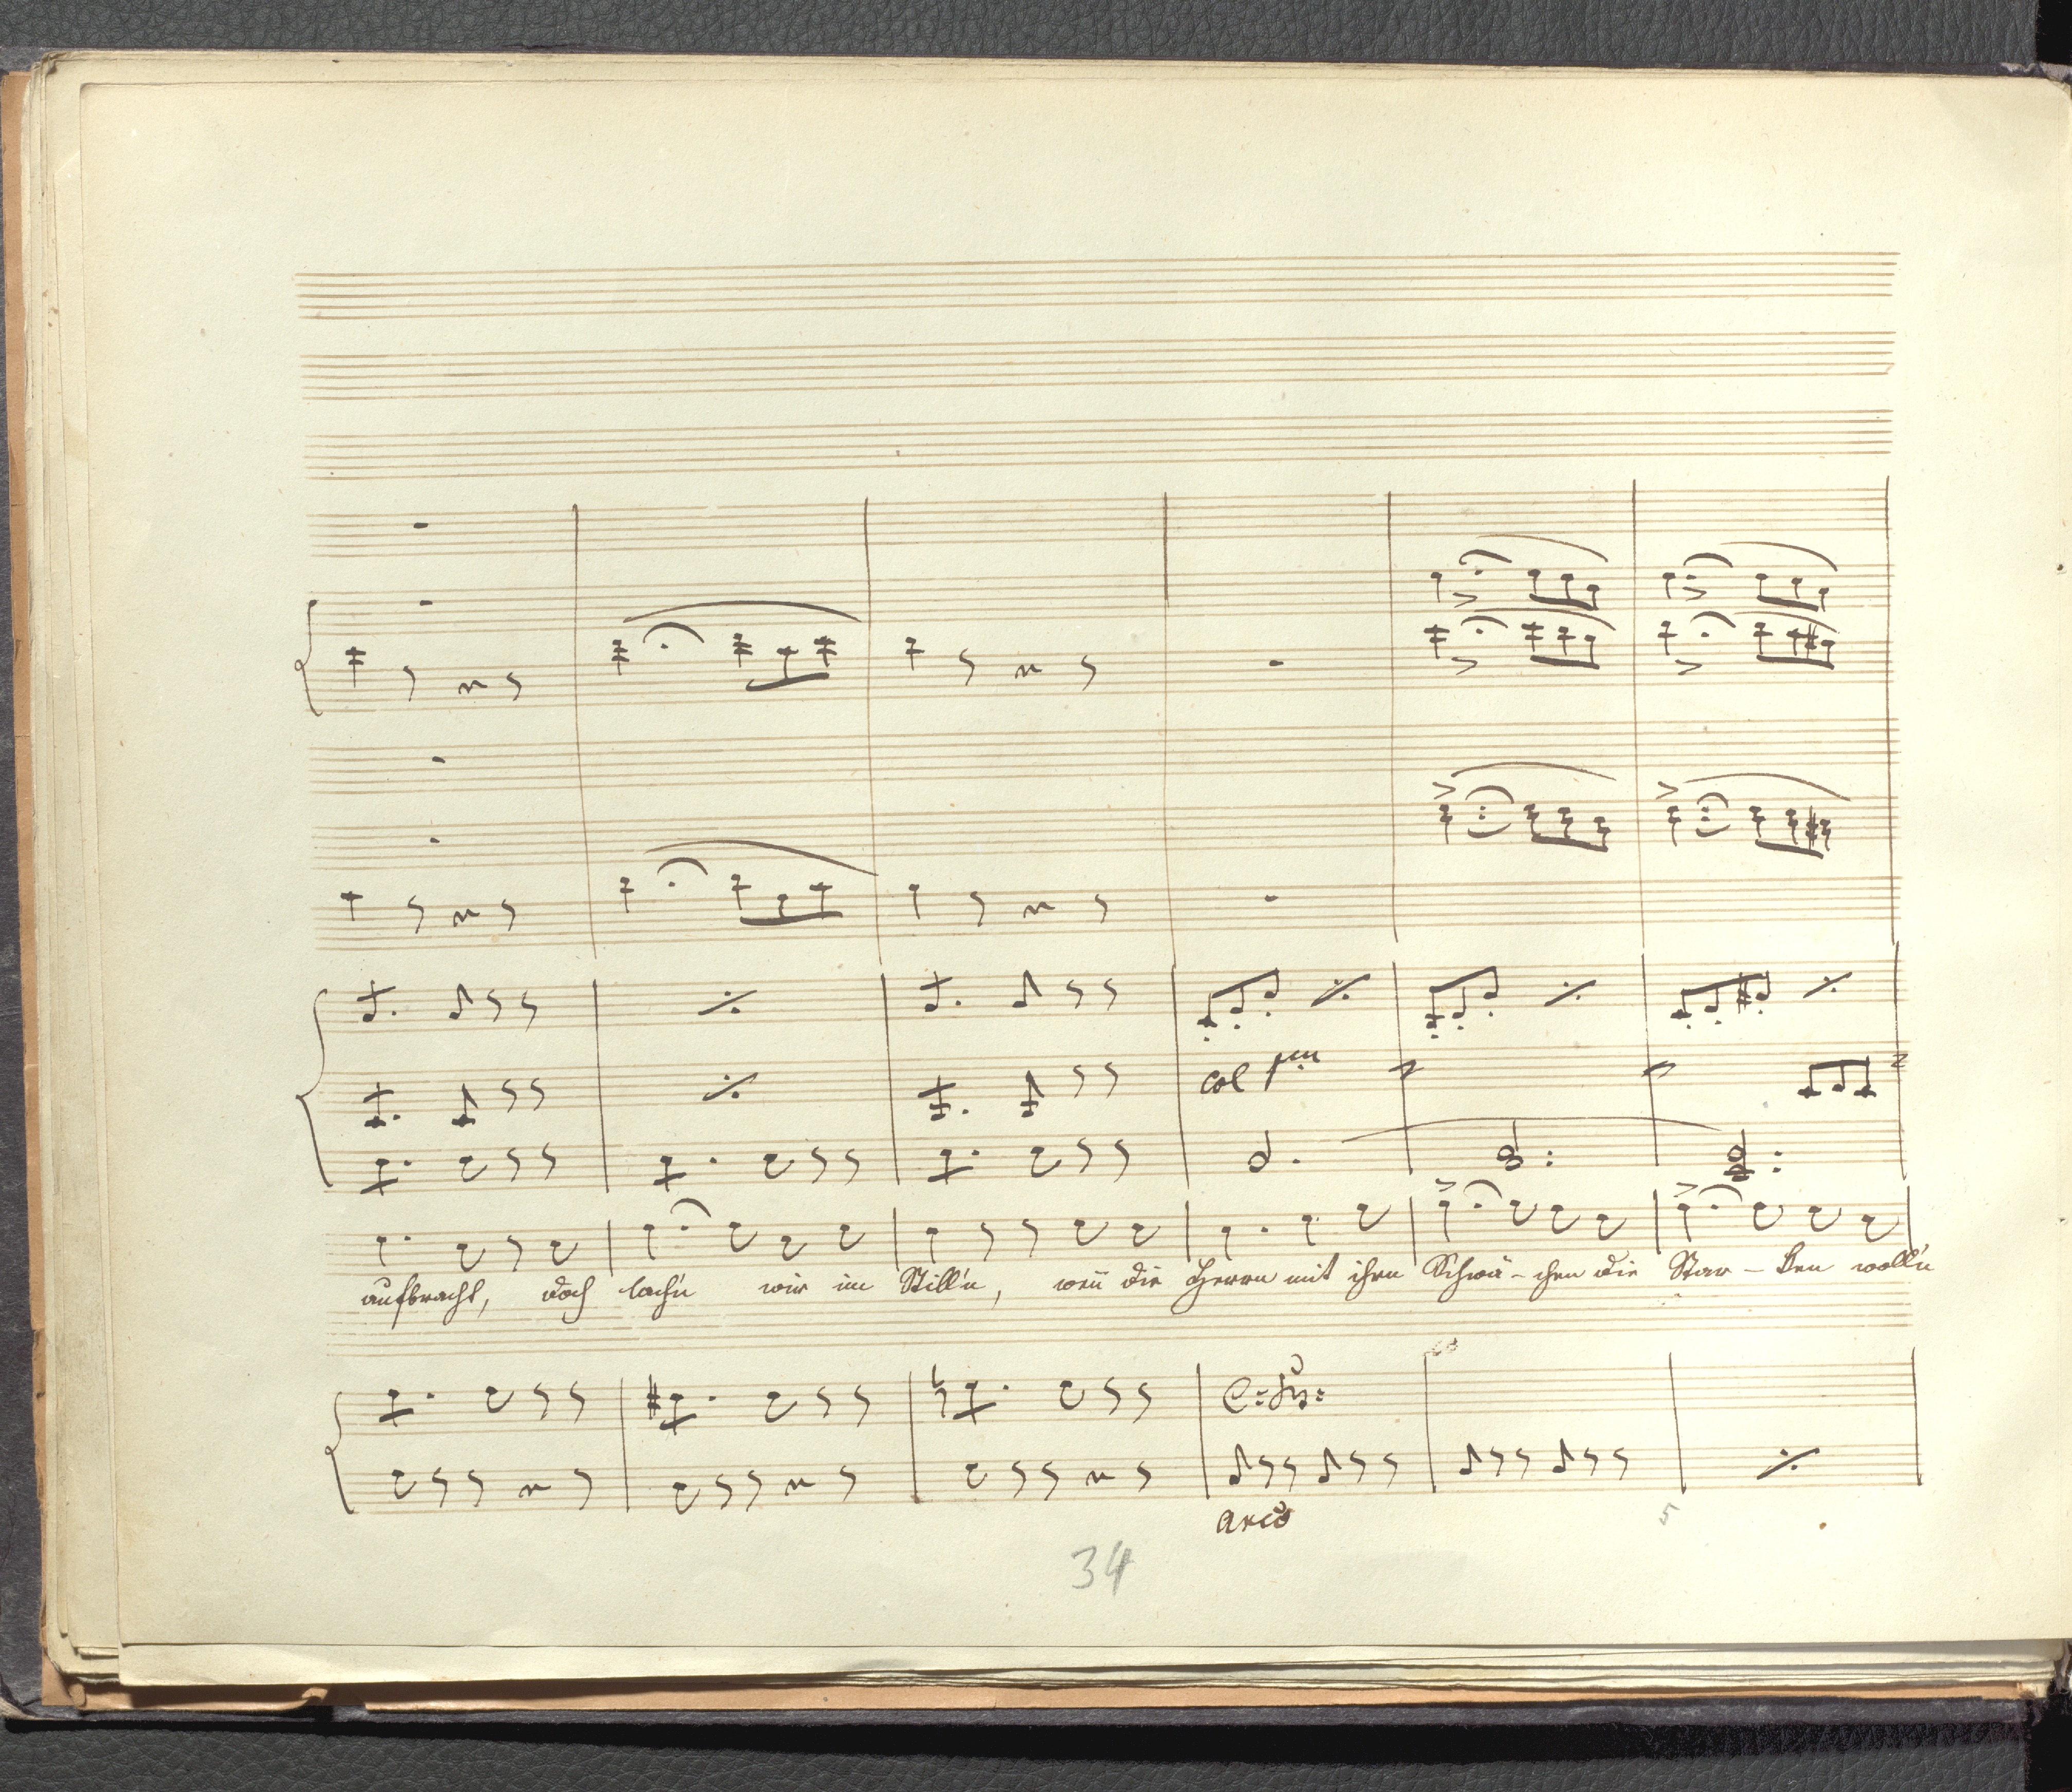 col 1mo
aufbracht, doch lach'n wir im Still'n, weñ die Herrn mit ihrn Schwä-chen die Star-ken woll'n
arco
5
34